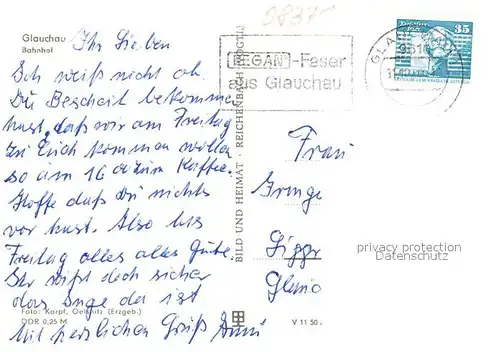 Glauchau
Bahnhof
Ihr Lieben
Ich weiß nicht ob
Du Bescheit bekommen
hast, daß wir am Freitag
zu Euch kommen wollen
so um 16 zum Kaffee.
Hoffe daß du nichts
vor hast. Also bis
Freitag alles alles Gute.
Ihr wißt doch sicher
das Inge da ist
Mit herzlichen Gruß Anni
Foto: Karpf, Oelsnitz (Erzgeb.)
DDR 0,25 M
BILD UND HEIMAT · REICHENBACH (VOGTL)
V 11 50
0837
REGAN-Faser
aus Glauchau
GLAUCHAU
9610
35
Frau
privacy protection
Datenschutz